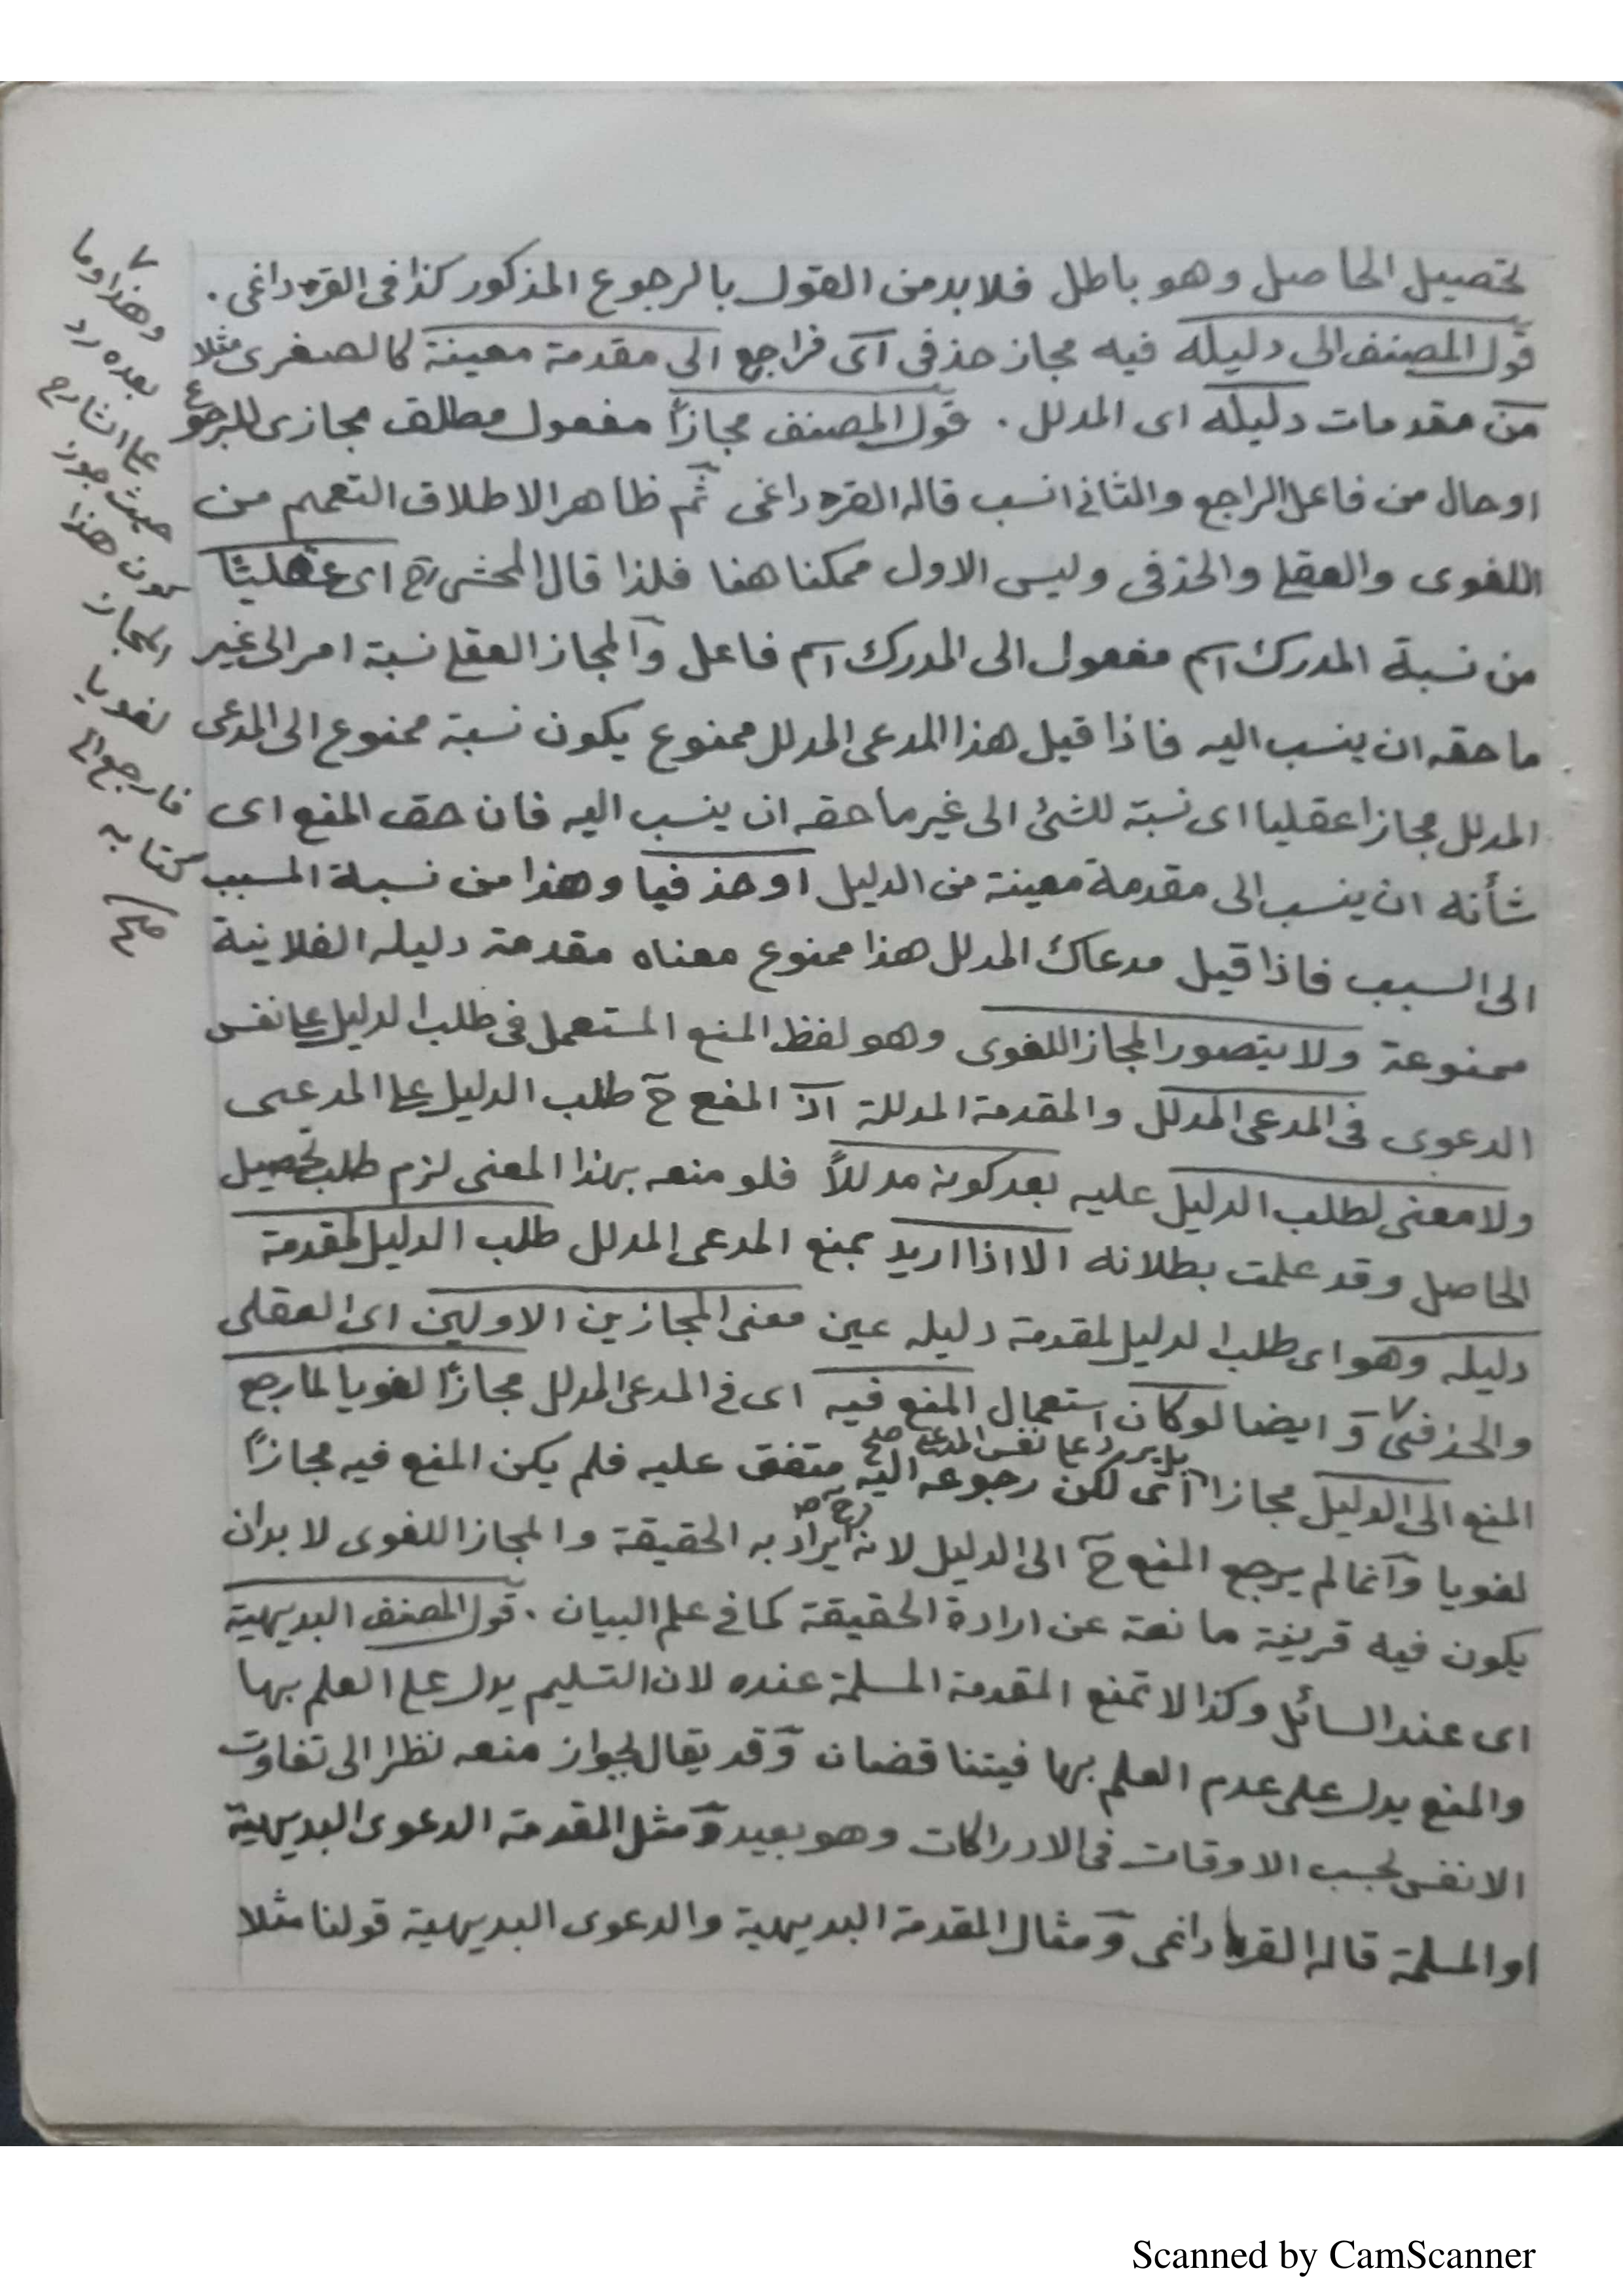 تحصيل الحاصل وهو باطل فلا بد من القول بالرجوع المذكور كذا فى القره داغى .
قول المصنف الى دليله فيه مجاز حذفى اى فراجع الى مقدمة معينة كالصغرى مثلا
من مقدمات دليله اى المدلل . قول المصنف مجازاً مفعول مطلق مجازى للرجوع
او حال من فاعل الراجع والثانى انسب قاله القره داغى ثم ظاهر الاطلاق التعميم من
اللغوى والعقلى والحذفى وليس الاول ممكنا هنا فلذا قال المحشى رح اى عقليّا
من نسبة المدرك اسم مفعول الى المدرك اسم فاعل والمجاز العقلى نسبة امر الى غير
ما حقه ان ينسب اليه فاذا قيل هذا المدعى المدلل ممنوع يكون نسبة ممنوع الى المدعى
المدلل مجازا عقليا اى نسبة للشئ الى غير ما حقه ان ينسب اليه فان حق المنع اى
شأنه ان ينسب الى مقدمة معينة من الدليل او حذفيا وهذا من نسبة المسبب
الى السبب فاذا قيل مدعاك المدلل هذا ممنوع معناه مقدمة دليله الفلانية
ممنوعة ولا يتصور المجاز اللغوى وهو لفظ المنع المستعمل فى طلب الدليل على نفس
الدعوى فى المدعى المدلل والمقدمة المدللة اذ المنع ح طلب الدليل على المدعى
ولا معنى لطلب الدليل عليه بعد كونه مدللاً فلو منعه بهذا المعنى لزم طلب تحصيل
الحاصل وقد علمت بطلانه الا اذا اريد بمنع المدعى المدلل طلب الدليل لمقدمة
دليله وهو اى طلب الدليل لمقدمة دليله عين معنى المجازين الاولين اى العقلى
والحذفى و ٧ ايضا لو كان استعمال المنع فيه اى فى المدعى المدلل مجازاً لغويا لما رجع
بل يرد على نفس المدعى صح
المنع الى الدليل مجازا اى لكن رجوعه اليه متفق عليه فلم يكن المنع فيه مجازاً
لغويا وانما لم يرجع المنع ح الى الدليل لانه ح يراد به الحقيقة والمجاز اللغوى لا بد ان
يكون فيه قرينة مانعة عن ارادة الحقيقة كما فى علم البيان . قول المصنف البديهية
اى عند السائل وكذا لا تمنع المقدمة المسلمة عنده لان التسليم يدل على العلم بها
والمنع يدل على عدم العلم بها فيتناقضان وقد يقال بجواز منعه نظرا الى تفاوت
الانفس بحسب الاوقات فى الادراكات وهو بعيد ومثل المقدمة الدعوى البديهية
او المسلمة قاله القره داغى ومثال المقدمة البديهية والدعوى البديهية قولنا مثلا
٧
وهذا وما
بعده رد
على الشارح
حيث جوز
كون هذا
المجاز
لغويا
فارجع الى
كتابه
Scanned by CamScanner